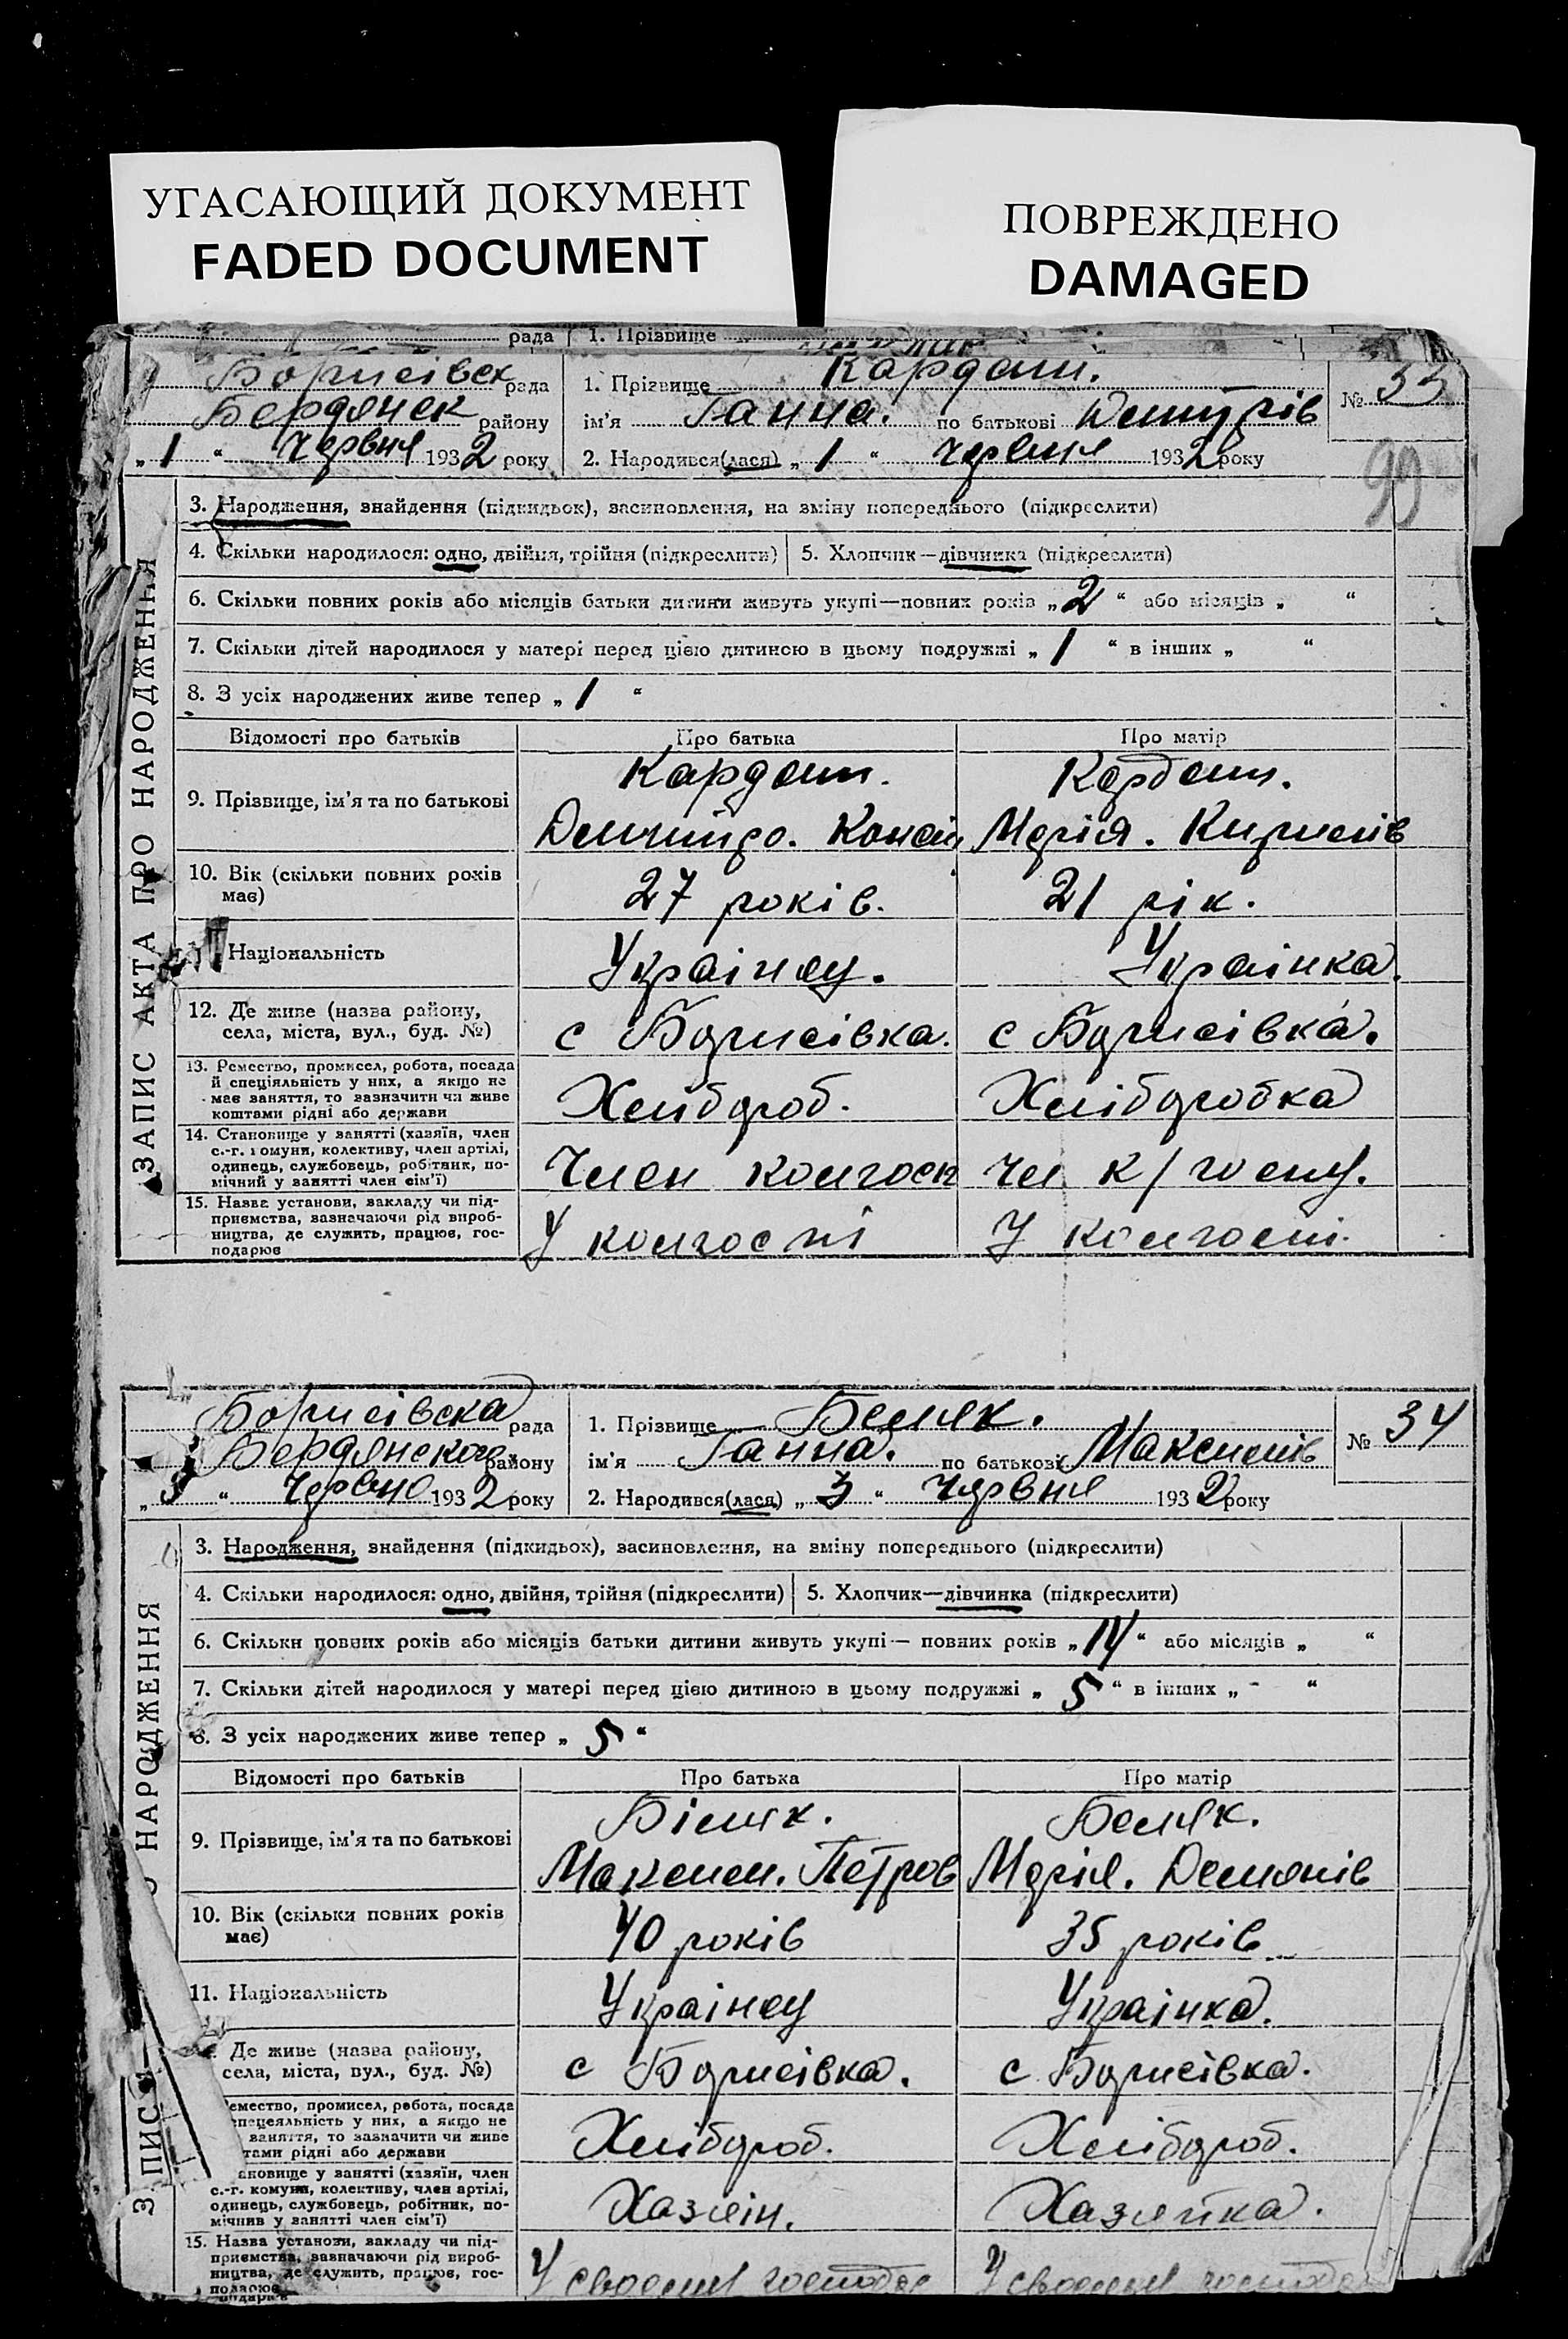 УГАСАЮЩИЙ ДОКУМЕНТ
FADED DOCUMENT
ПОВРЕЖДЕНО
DAMAGED
рада 1. Прізвище
Борисівск рада 1. Прізвище Кардаш. № 33
Бердянск району ім'я Ганна. по батькові Дмитрів
„1“ Червня 1932 року 2. Народився(лася) „1“ Червня 1932 року
99
ЗАПИС АКТА ПРО НАРОДЖЕННЯ
3. Народження, знайдення (підкидьок), засиновлення, на зміну попереднього (підкреслити)
4. Скільки народилося: одно, двійня, трійня (підкреслити) 5. Хлопчик—дівчинка (підкреслити)
6. Скільки повних років або місяців батьки дитини живуть укупі—повних років „2“ або місяців „ “
7. Скільки дітей народилося у матері перед цією дитиною в цьому подружжі „1“ в інших „ “
8. З усіх народжених живе тепер „1“
Відомості про батьків Про батька Про матір
9. Прізвище, ім'я та по батькові Кардаш. Кардаш.
Марія. Кирилів
10. Вік (скільки повних років має) 27 років. 21 рік.
Національність Українец. Українка.
12. Де живе (назва району, села, міста, вул., буд. №) с Борисівка. с Борисівка.
13. Ремество, промисел, робота, посада
й спеціяльність у них, а якщо не
має заняття, то зазначити чи живе
коштами рідні або держави Хлібороб. Хліборобка
14. Становище у занятті (хазяїн, член
с.-г. комуни, колективу, член артілі,
одинець, службовець, робітник, по-
мічний у занятті член сім'ї) Член колгосп чл к/госпу.
15. Назва установи, закладу чи під-
приємства, зазначаючи рід вироб-
ництва, де служить, працює, гос-
подарює У колгоспі У колгоспі.
Борисівска рада 1. Прізвище Беляк. № 34
Бердянского району ім'я Ганна. по батькові Максимів
„3“ Червню 1932 року 2. Народився(лася) „3“ Червня 1932 року
НАРОДЖЕННЯ
3. Народження, знайдення (підкидьок), засиновлення, на зміну попереднього (підкреслити)
4. Скільки народилося: одно, двійня, трійня (підкреслити) 5. Хлопчик—дівчинка (підкреслити)
6. Скільки повних років або місяців батьки дитини живуть укупі— повних років „14“ або місяців „ “
7. Скільки дітей народилося у матері перед цією дитиною в цьому подружжі „5“ в інших „-“
8. З усіх народжених живе тепер „5“
Відомості про батьків Про батька Про матір
9. Прізвище, ім'я та по батькові Біляк. Беляк.
Максим. Петров Марія. Демянів
10. Вік (скільки повних років має) 40 років 35 років
11. Національність Українец Українка.
Де живе (назва району, села, міста, вул., буд. №) с Борисівка. с Борисівка.
емество, промисел, робота, посада
спецеяльність у них, а якщо не
заняття, то зазначити чи живе
тами рідні або держави Хлібороб. Хлібороб.
ановище у занятті (хазяїн, член
с.-г. комуни, колективу, член артілі,
одинець, службовець, робітник, по-
мічнив у занятті член сім'ї) Хазяін. Хазяйка.
15. Назва установи, закладу чи під-
приємства, зазначаючи рід вироб-
ництва, де служить, працює, гос-
подарює У своєму господар У своєму господар
ЗАПИС